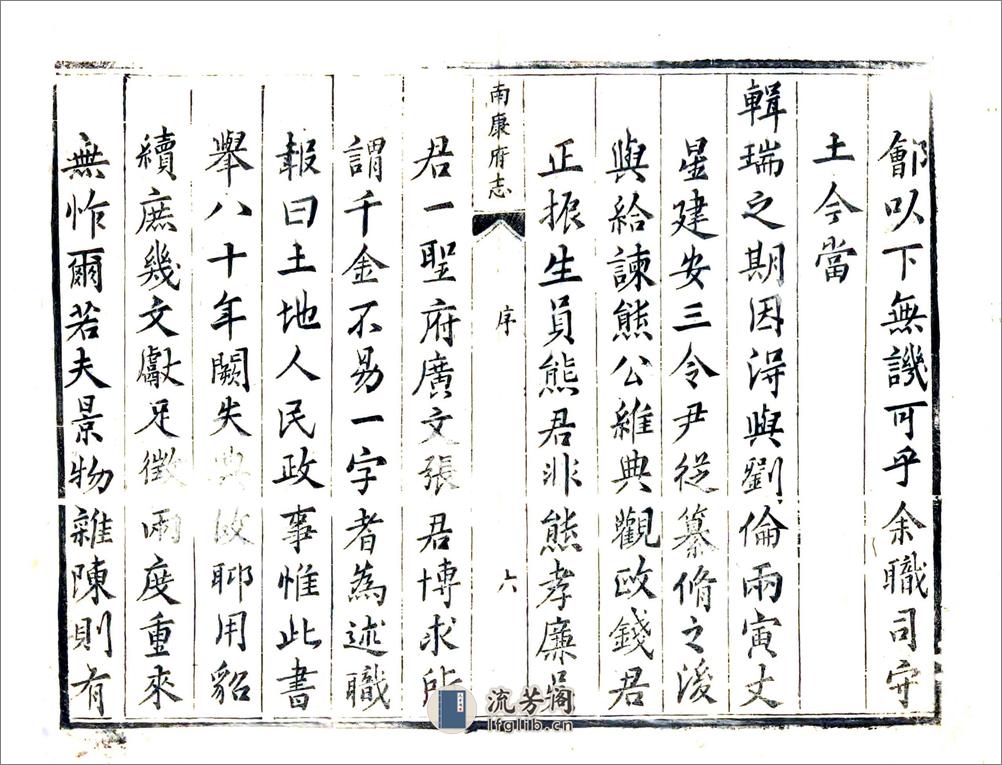 鄶以下無譏可乎余職司守
土今當
輯瑞之期因得與劉倫兩寅丈
星建安三令尹從纂脩之後
與給諫熊公維典觀政錢君
正振生員熊君非熊孝廉吳
君一聖府廣文張君博求所
謂千金不易一字者為述職
報曰土地人民政事惟此書
舉八十年闕失典故耶用貂
續庶幾文獻足徵兩度重來
無怍爾若夫景物雜陳則有
南康府志
序
六
流芳阁
lfglib.cn